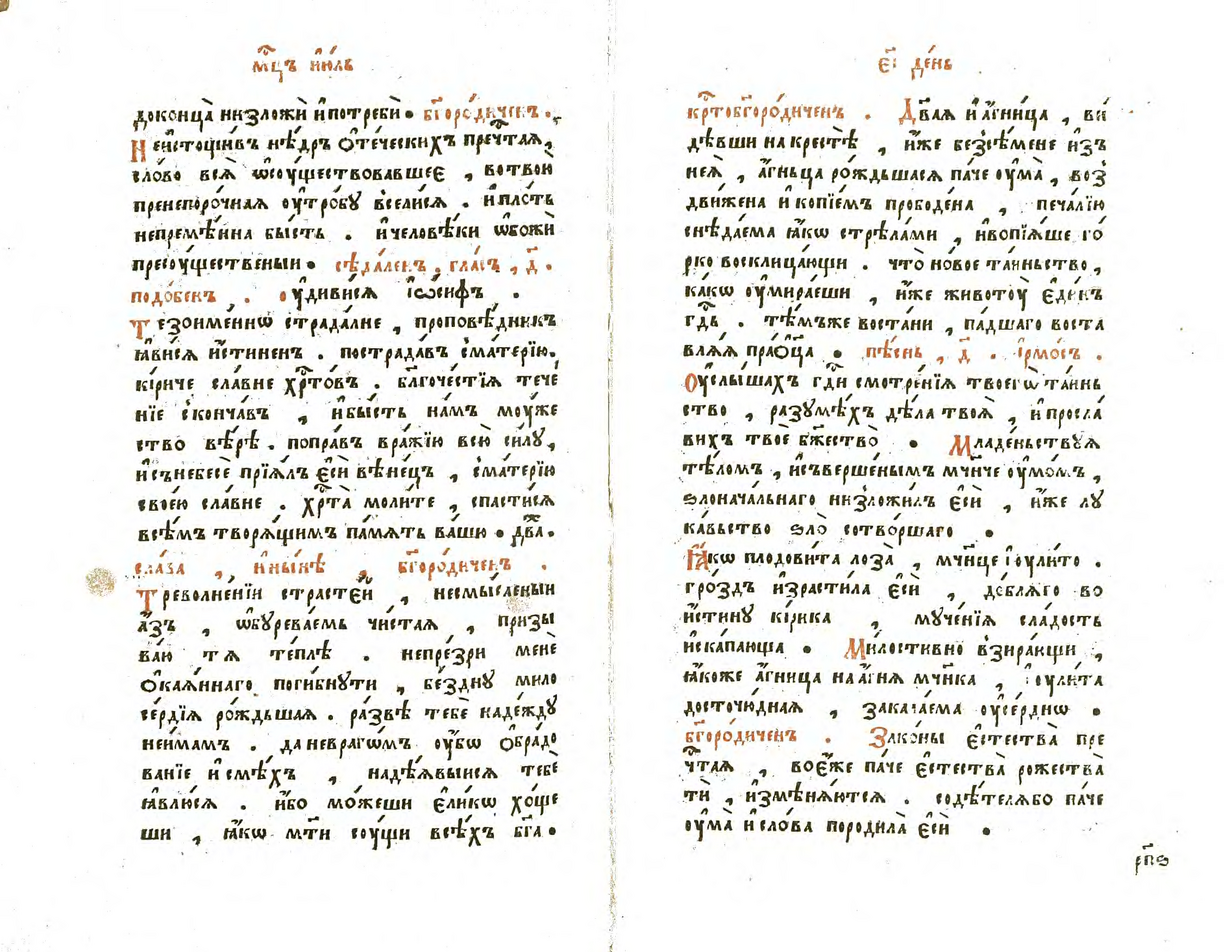 мⷭ҇цъ і҆ю́ль
доконца̀ низложѝ ипотребѝ • бг҃оро́диченъ .
Неистощи́въ нѣ́дръ ѻте́ческихъ пречⷭ҇тая,
сло́во всѧ̀ ѡсоуществова́вшее , вотвою̀
пренепоро́чная оу҆тро́бу всели́ся . ипло́ть
непремѣ́нна бы́сть . ичеловѣ́ки ѡбожи̂
пресоу́щественыи • сѣда́ленъ , гла́съ , д҃ .
подо́бенъ . оудиви́ся і҆ѡ́сифъ .
Тезоимени́тѡ страда́лне , проповѣ́дникъ
ꙗ҆ви́ся и҆́стиненъ . пострада́въ сма́терїю.
кі́риче сла́вне хрⷭ҇то́въ . благоче́стїя тече́
нїе сконча́въ , ибы́сть на́мъ моу́же
ство вѣ́рѣ . попра́въ вра́жїю всю̀ си́лу,
исънебесѐ прїя́лъ є҆сѝ вѣне́цъ , сма́терїю
свое́ю сла́вне . хрⷭ҇та̀ моли́те , спасти́ся
всѣ́мъ творя́щимъ па́мять ва́шю • два́ж.
сла́ва , и҆ны́нѣ , бг҃оро́диченъ .
Треволне́нїи страсте́й , несмы́сленыи
а҆́зъ , ѡбурева́емь чи́стая , призы
ва́ю тѧ те́плѣ . непре́зри менѐ
ѻкая́ннаго поги́бнути , бе́здну мило
се́рдїя ро́ждьшая . ра́звѣ тебѐ наде́жду
неи́мамъ . даневраго́мъ оу҆́бо ѻбра́до
ванїе и҆смѣ́хъ , надѣ́явыися тебѐ
ꙗ҆влю́ся . и҆́бо мо́жеши є҆ли́кѡ хо́ще
ши , ꙗ҆́кѡ мт҃и соу́щи всѣ́хъ бг҃а •
є҃і де́нь
крⷭ҇тобг҃оро́диченъ . Два́я и҆ а҆́гница , ви́
дѣвши на крестѣ̀ , и҆́же безсѣ́мене и҆зъ
нея̀ , а҆́гньца ро́ждьшася па́че оу҆ма̀ , воз
дви́жена и҆ копїе́мъ прободе́на , печа́лїю
снѣда́ема ꙗ҆́кѡ стрѣла́ми , ивопїя́ше го́
рко восклица́ющи . что̀ но́вое та́иньство ,
ка́кѡ оу҆мира́еши , и҆́же животоу̀ є҆ди́нъ
гд҃ь . тѣ́мъже воста́ни , па́дшаго воста
вля́я пра́ѻца • пѣ́снь , д҃ . і҆рмо́съ .
Оуслы́шахъ гд҃и смотре́нїя твоегѡ̀ та́инь
ство , разумѣ́хъ дѣла̀ твоя̀ , и҆ просла́
вихъ твоѐ бж҃ество̀ • Младе́ньствуя
тѣ́ломъ , исъверше́нымъ мч҃ниче оу҆мо́мъ ,
ѕлонача́льнаго низложи́лъ є҆сѝ , и҆́же лу
ка́вьство ѕло̀ сотво́ршаго •
Ꙗкѡ плодови́та лоза̀ , мч҃нице і҆оули́то .
гро́здъ и҆зрасти́ла є҆сѝ , до́бляго во
и҆́стину кі́рика , муче́нїя сла́дость
и҆скапа́юща • Ми́лостивно взира́ющи ,
ꙗ҆́коже а҆́гница на а҆́гня мч҃нка , і҆оули́та
досточю́дная , закала́ема оу҆се́рднѡ •
бг҃оро́диченъ . Зако́ны є҆стества̀ пре
чⷭ҇тая , воє҆́же па́че є҆стества̀ рожества̀
тѝ , и҆змѣня́ются . содѣ́телябо па́че
оу҆ма̀ и҆ сло́ва породила̀ є҆сѝ •
рп҃ѕ